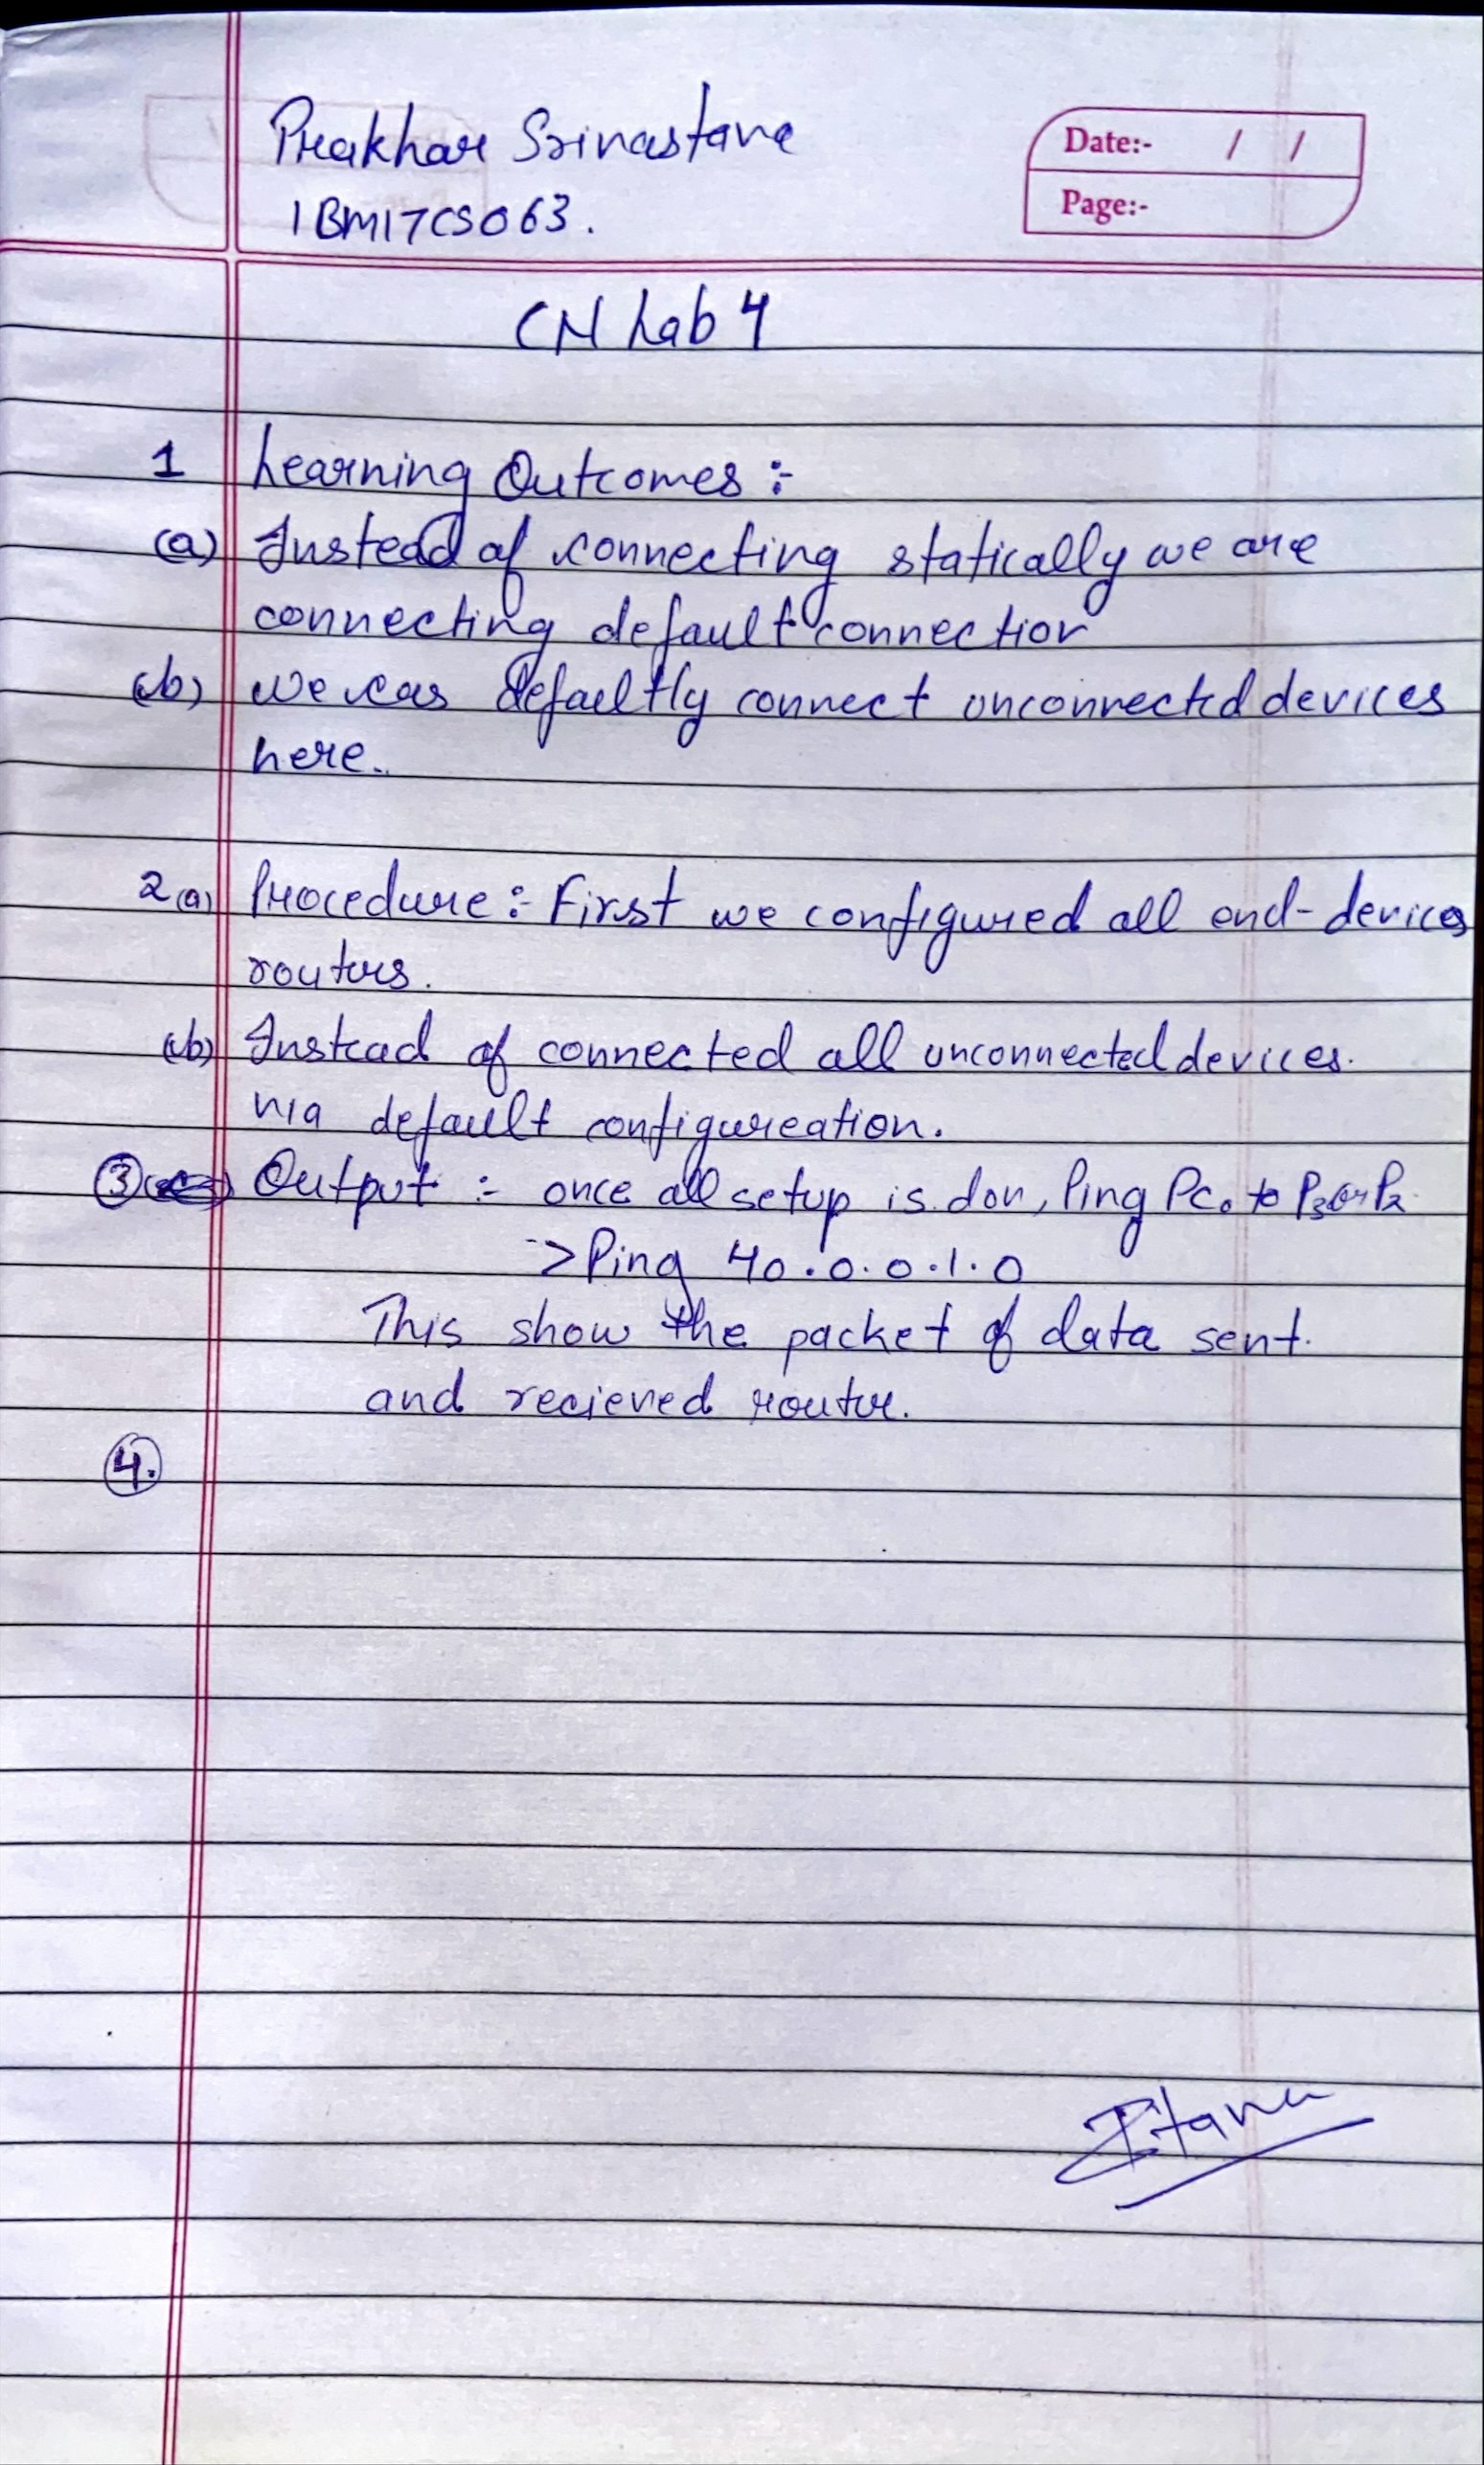 Prakhar Srivastava
1BM17CS063.
Date:- / /
Page:-
CN Lab 4
1 Learning Outcomes :-
(a) Instead of connecting statically we are
connecting default connection
(b) we can defaultly connect unconnected devices
here.
2(a) Procedure :- First we configured all end-devices
routers.
(b) Instead of connected all unconnected devices.
via default configuration.
3 Output :- once all setup is don, Ping PC0 to P3 or P2.
>Ping 40.0.0.1.0
This show the packet of data sent.
and recieved router.
4.